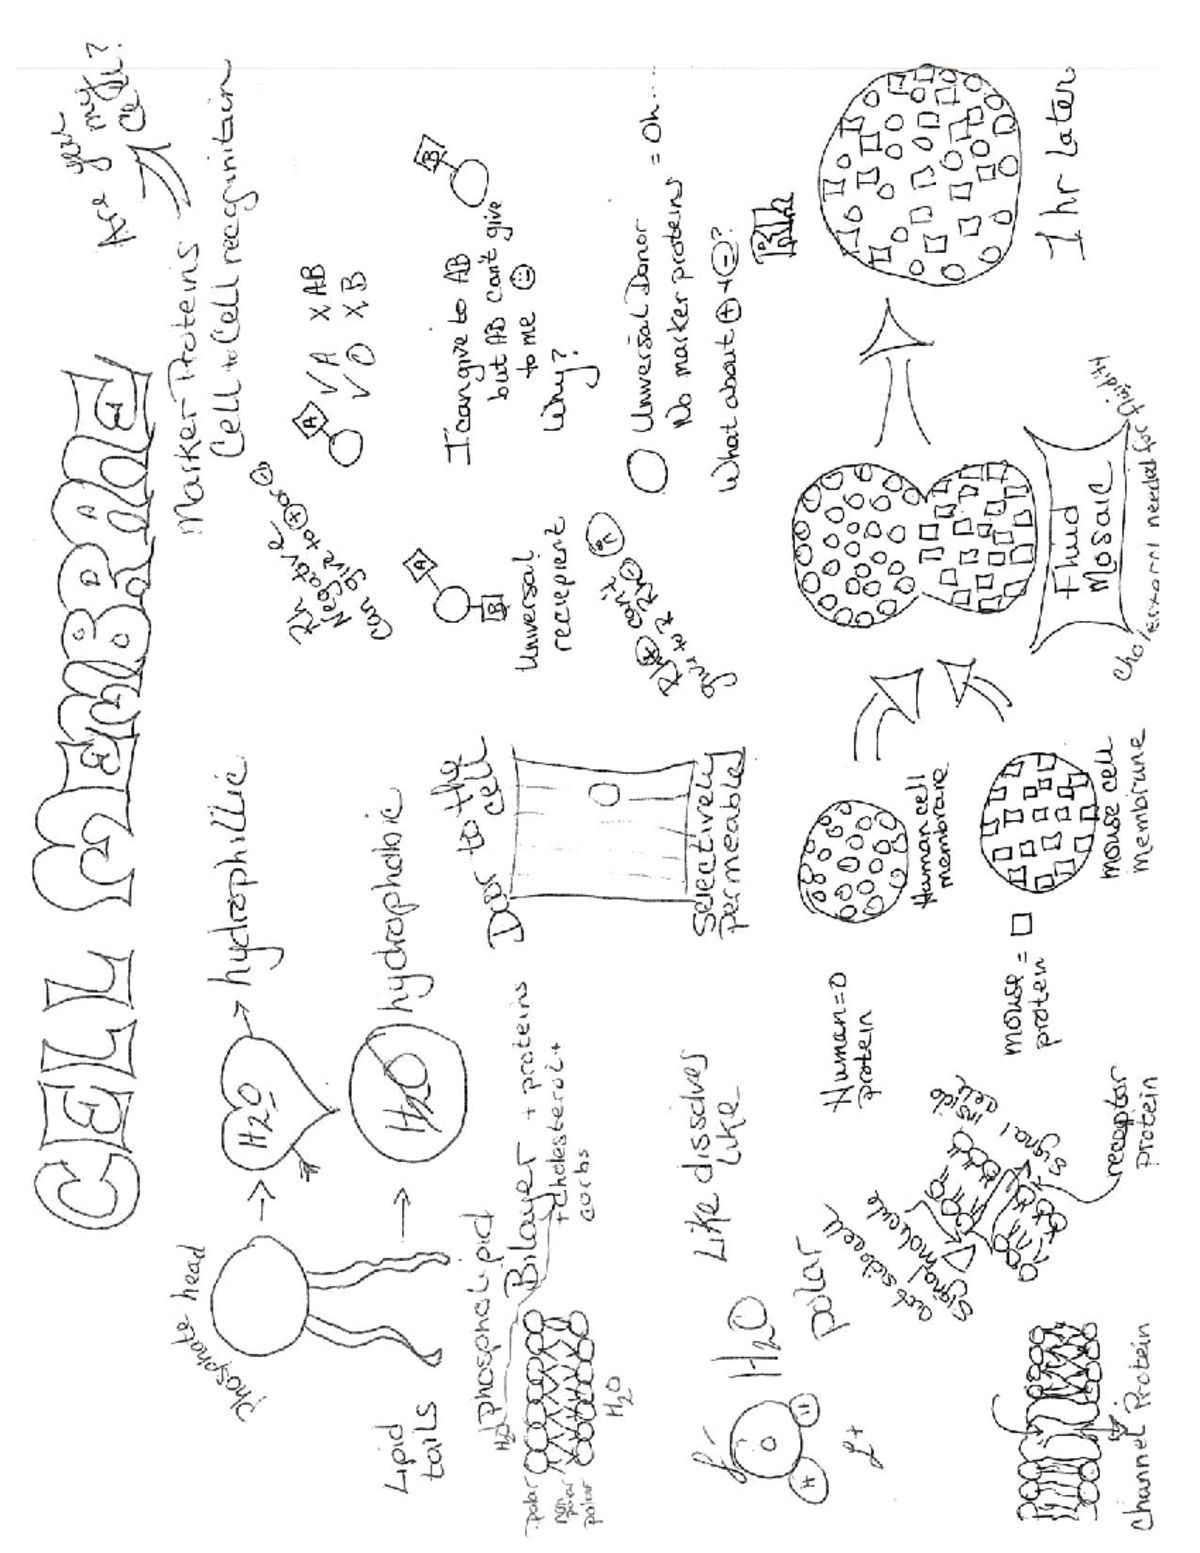 CELL MEMBRANE
Phosphate head
H2O
hydrophillic
Lipid
tails
H2O
hydrophobic
H2O
phospholipid
Bilayer + proteins
+ cholesterol +
carbs
polar
non
polar
polar
H2O
Door to the
cell
Selectively
permeable
Like dissolves
Like
H2O
polar
O
H
H
Marker Proteins
Cell to Cell recognitain
Are you
my
Cell?
Rh
Negative
can give to + or -
A
✓ A X AB
✓ O X B
A
B
Universal
recipient
I can give to AB
but AB can't give
to me
Why?
B
Rh + can't
give to Rh -
Universal Donor
No marker proteins = Oh...
What about + + - ?
Rh
Human = O
protein
mouse = □
protein
Human cell
membrane
mouse cell
membrane
Fluid
Mosaic
Cholesterol needed for fluidity
1 hr Later
Channel Protein
out side cell
signal molecule
signal inside
cell
receptor
protein